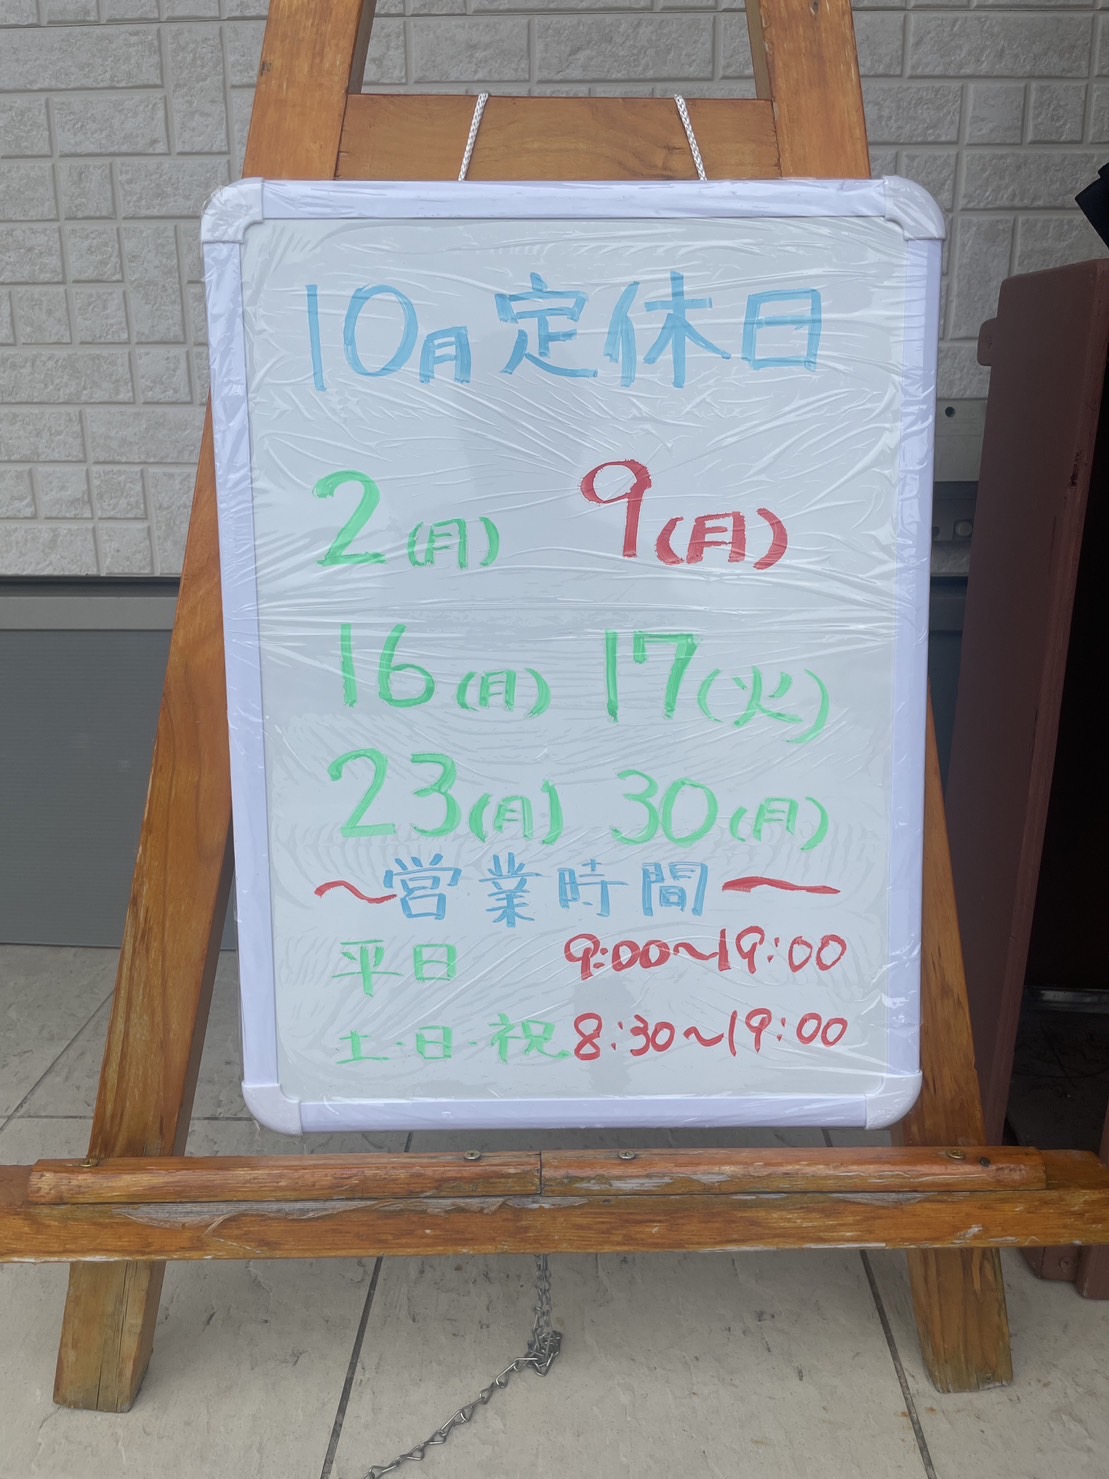 10月定休日
2(月) 9(月)
16(月) 17(火)
23(月) 30(月)
〜営業時間〜
平日 9:00〜19:00
土・日・祝 8:30〜19:00